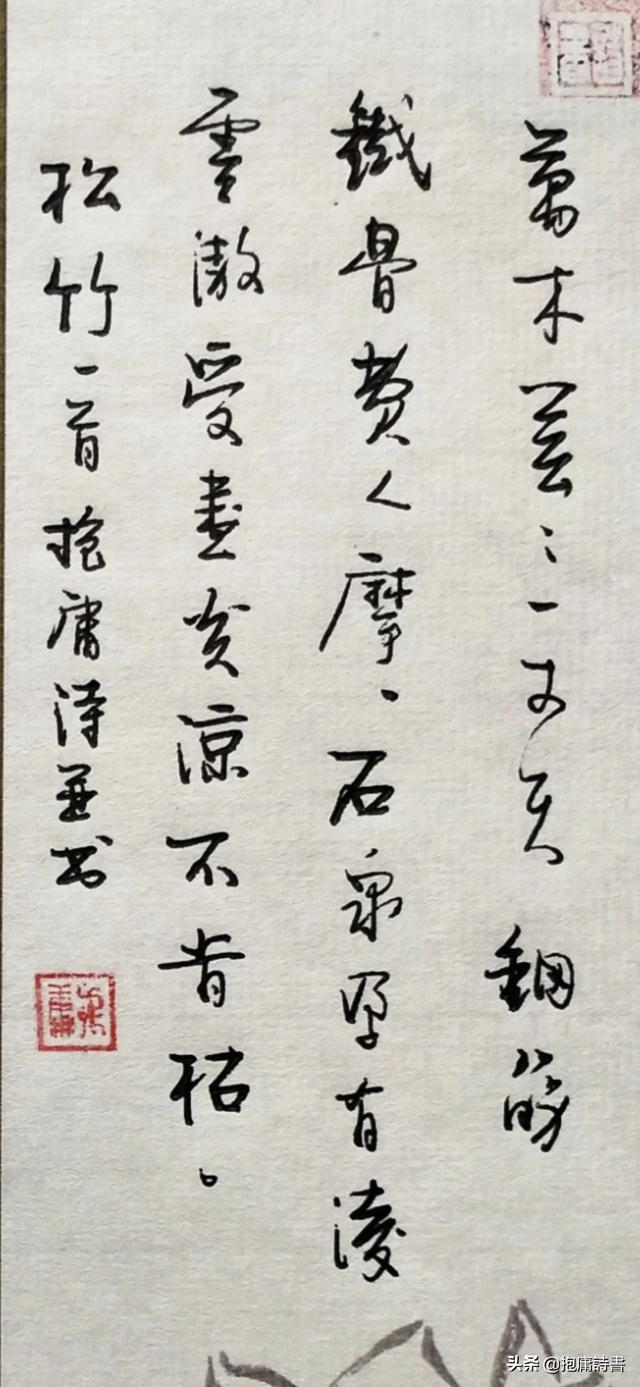 萬木芸〻一丈夫鋼筋
鐵骨費人摩、石泉孕有凌
雲傲受盡炎涼不肯枯。
松竹一首抱庸詩並書
头条 @抱庸詩書